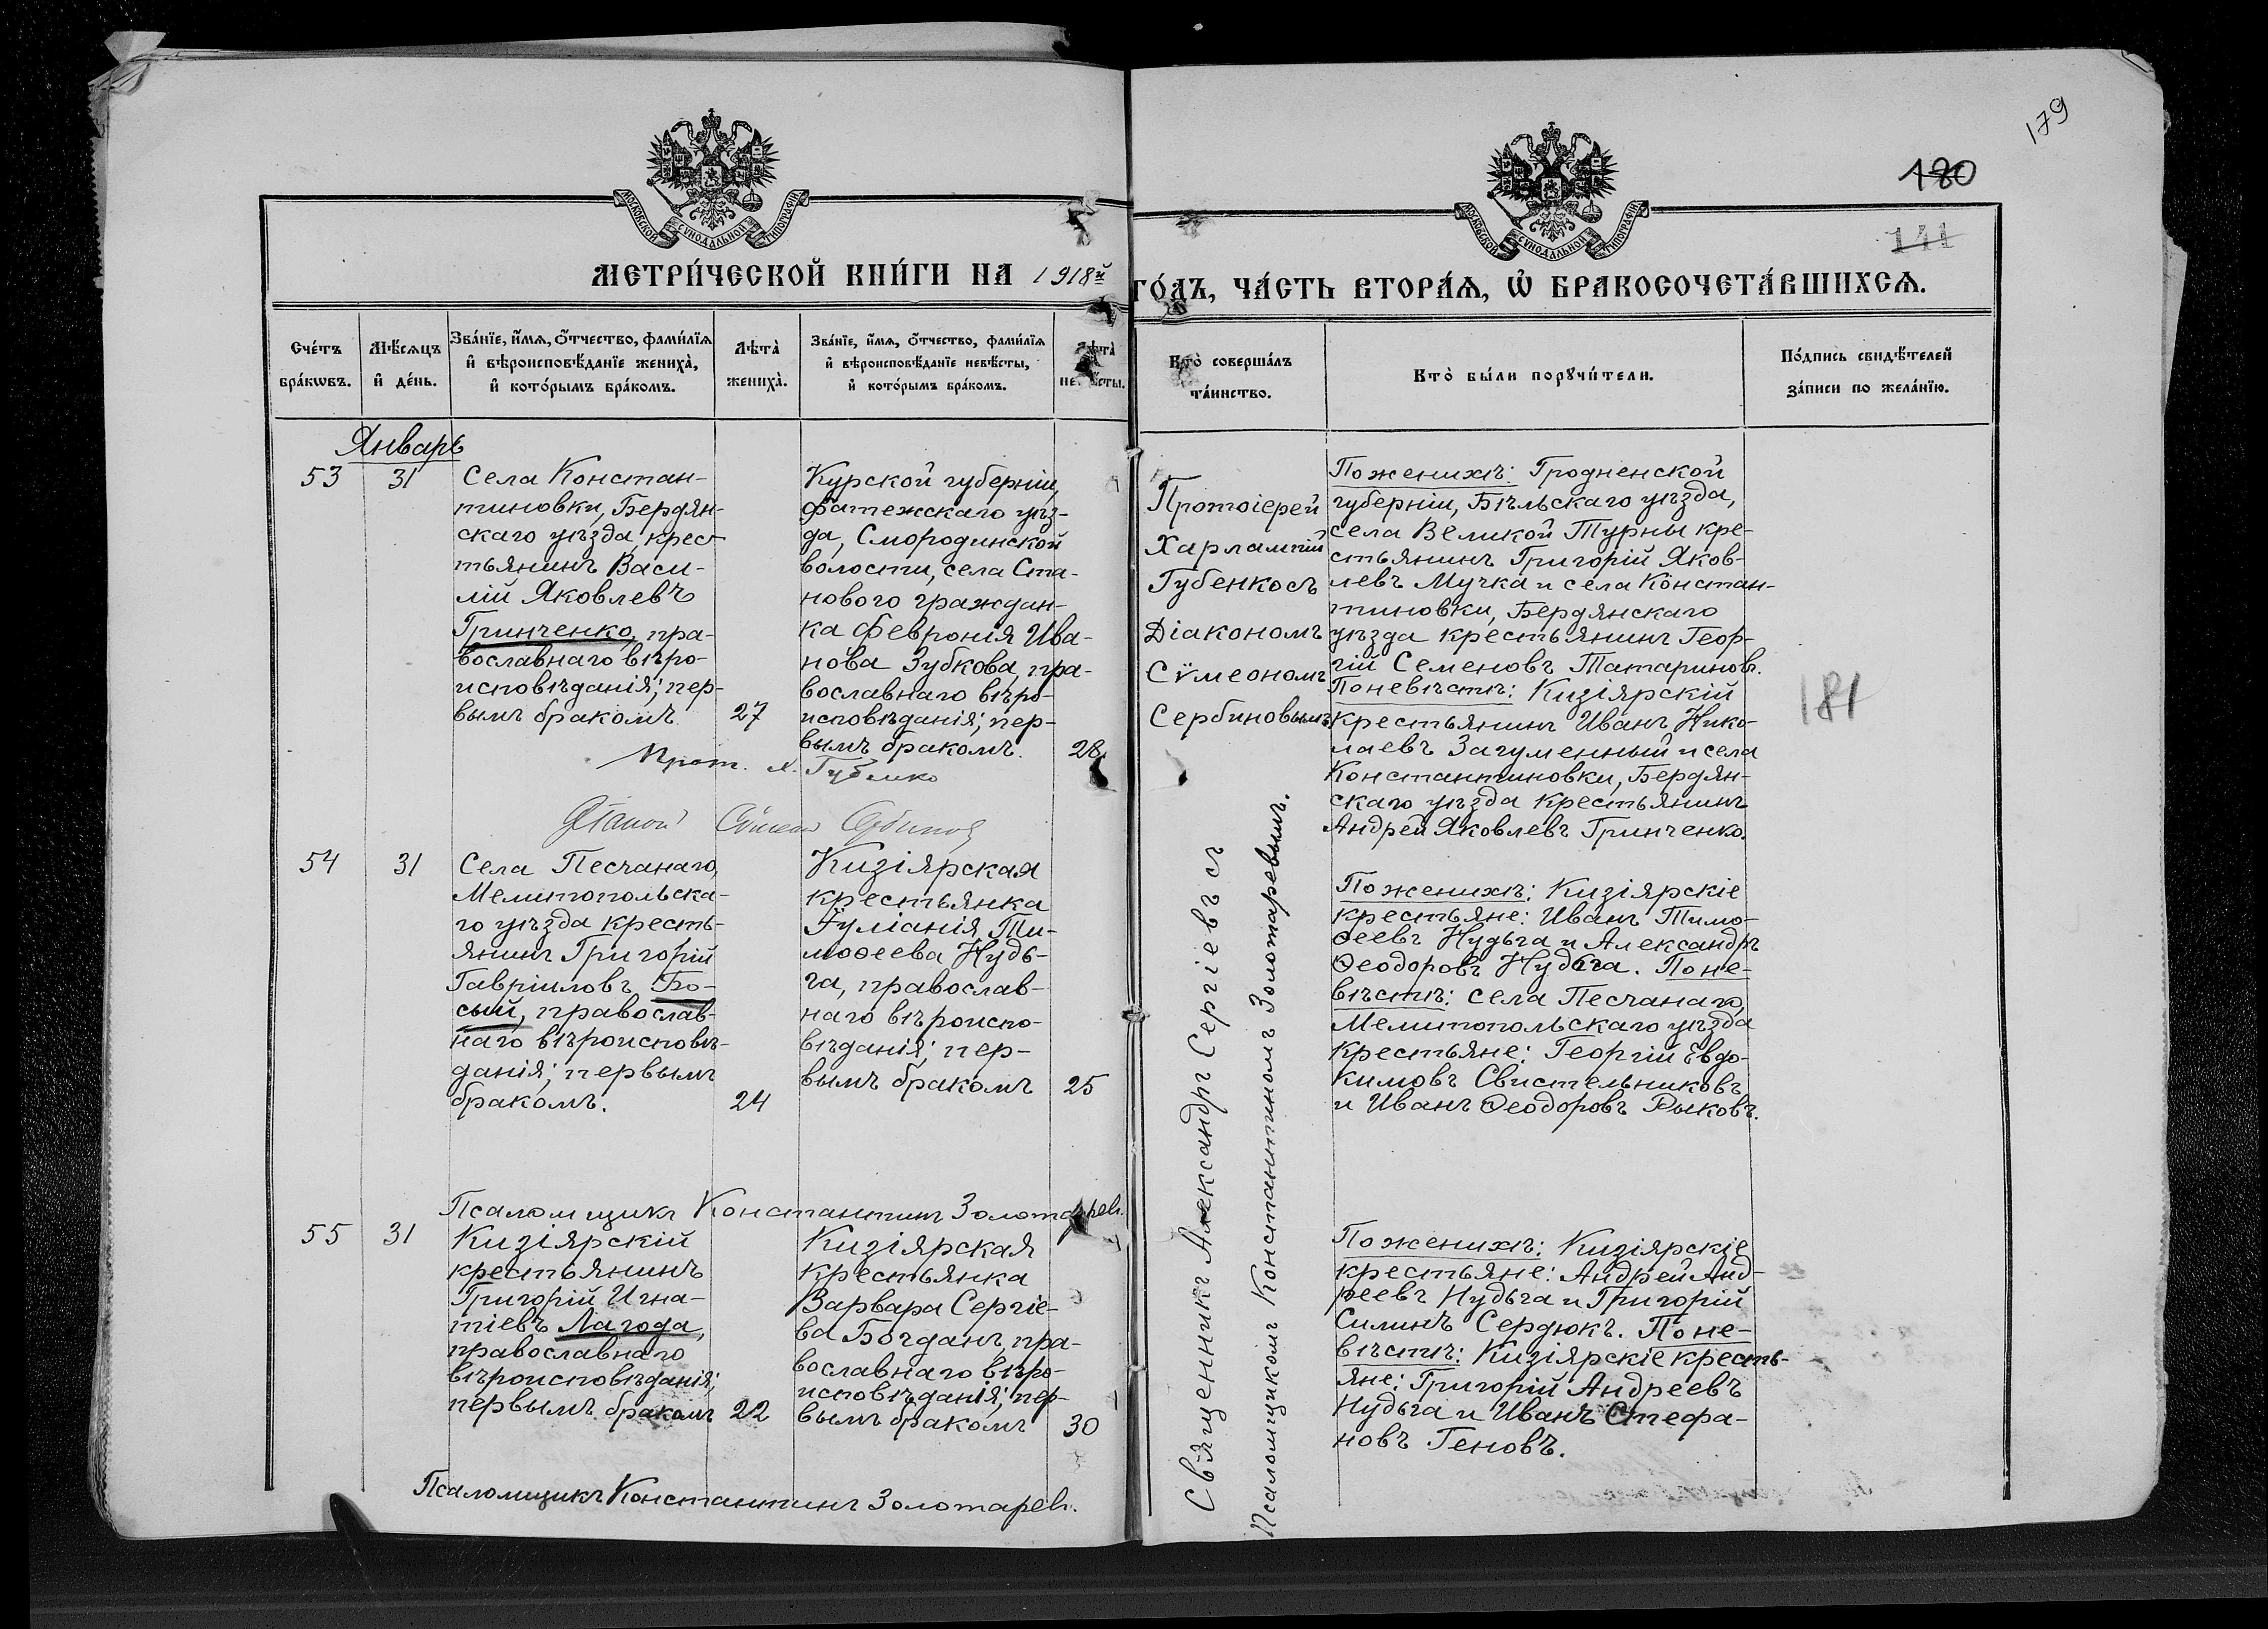 179
180
141
МОСКОВСКОЙ СѴНОДАЛЬНОЙ ТИПОГРАФІИ
МОСКОВСКОЙ СѴНОДАЛЬНОЙ ТИПОГРАФІИ
МЕТРИ́ЧЕСКОЙ КНИ́ГИ НА 1918й
ГО́ДЪ, ЧА́СТЬ ВТОРА́Ѧ, Ѽ БРАКОСОЧЕТА́ВШИХСѦ.
Сче́тъ
бра́кѡвъ.
Мѣ́сѧцъ
и҆ де́нь.
Зва́нїе, и҆́мѧ, ѻ҆́тчество, фами́лїѧ
и҆ вѣроисповѣ́данїе жениха̀,
и҆ кото́рымъ бра́комъ.
Лѣта̀
жениха̀.
Зва́нїе, и҆́мѧ, ѻ҆́тчество, фами́лїѧ
и҆ вѣроисповѣ́данїе невѣ́сты,
и҆ кото́рымъ бра́комъ.
Лѣта̀
не ѣсты.
Кто̀ соверша́лъ
та́инство.
Кто̀ бы́ли порꙋчи́тели.
По́дпись свидѣ́телей
за́писи по жела́нїю.
Январь
53
31
Села Констан-
тиновки, Бердян-
скаго уѣзда, крес-
тьянинъ Васи-
лій Яковлевъ
Гринченко, пра-
вославнаго вѣро-
исповѣданія; пер-
вымъ бракомъ
27
Курской губерніи,
Фатежскаго уѣз-
да, Смородинской
волости, села Ста-
нового граждан-
ка Февронія Ива-
нова Зубкова, пра-
вославнаго вѣро-
исповѣданія; пер-
вымъ бракомъ.
28
Протоіерей
Харлампій
Губенкосъ
Діакономъ
Сѵмеономъ
Сербиновымъ
По женихѣ: Гродненской
губерніи, Бѣльскаго уѣзда,
села Великой Турны кре-
стьянинъ Григорій Яков-
левъ Мучка и села Констан-
тиновки, Бердянскаго
уѣзда крестьянинъ Геор-
гій Семеновъ Татариновъ.
По невѣстѣ: Кизіярскій
крестьянинъ Иванъ Нико-
лаевъ Загуменный и села
Константиновки, Бердян-
скаго уѣзда крестьянинъ
Андрей Яковлевъ Гринченко.
181
Прот. Х. Губенко
Діакон Сѵмеон Сербинов
54
31
Села Песчанаго,
Мелитопольска-
го уѣзда кресть-
янинъ Григорій
Гавріиловъ Бо-
сый, православ-
наго вѣроисповѣ-
данія; первымъ
бракомъ.
24
Кизіярская
крестьянка
Іуліанія Ти-
моѳеева Нудь-
га, православ-
наго вѣроиспо-
вѣданія; пер-
вымъ бракомъ
25
Священникъ Александръ Сергіевъ съ
Псаломщикомъ Константиномъ Золотаревымъ.
По женихѣ: Кизіярскіе
крестьяне: Иванъ Тимо-
ѳеевъ Нудьга и Александръ
Ѳеодоровъ Нудьга. По не-
вѣстѣ: села Песчанаго,
Мелитопольскаго уѣзда
крестьяне: Георгій Евдо-
кимовъ Свистельниковъ
и Иванъ Ѳеодоровъ Рыковъ.
Псаломщикъ Константинъ Золотаревъ.
55
31
Кизіярскій
крестьянинъ
Григорій Игна-
тіевъ Лагода,
православнаго
вѣроисповѣданія;
первымъ бракомъ
22
Кизіярская
крестьянка
Варвара Сергіе-
ва Богданъ, пра-
вославнаго вѣро-
исповѣданія; пер-
вымъ бракомъ
30
По женихѣ: Кизіярскіе
крестьяне: Андрей Анд-
реевъ Нудьга и Григорій
Силинъ Сердюкъ. По не-
вѣстѣ: Кизіярскіе кресть-
яне: Григорій Андреевъ
Нудьга и Иванъ Стефа-
новъ Геновъ.
Псаломщикъ Константинъ Золотаревъ.